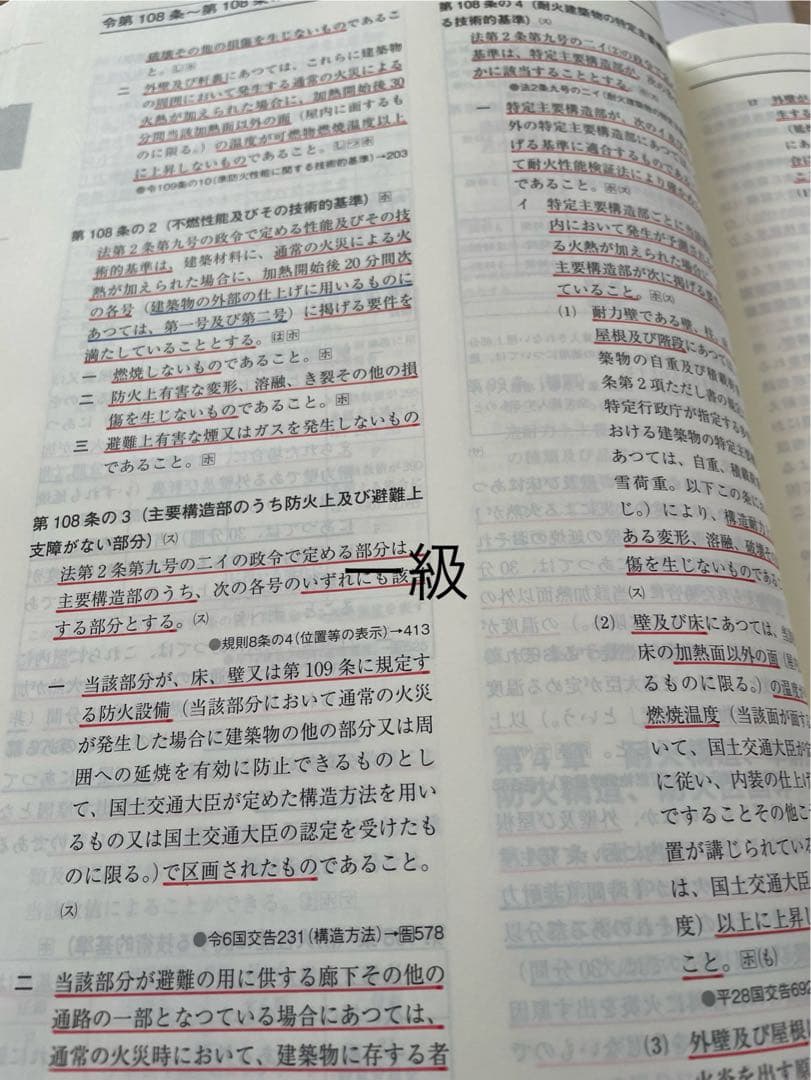 令第108条～第108条
破壊その他の損傷を生じないものであるこ
と。
二 外壁及び軒裏にあつては、これらに建築物
の周囲において発生する通常の火災による
火熱が加えられた場合に、加熱開始後30
分間当該加熱面以外の面（屋内に面するも
のに限る。）の温度が可燃物燃焼温度以上
に上昇しないものであること。
●令109条の10（準防火性能に関する技術的基準）→203
第108条の2（不燃性能及びその技術的基準）ホ
法第2条第九号の政令で定める性能及びその技
術的基準は、建築材料に、通常の火災による火
熱が加えられた場合に、加熱開始後20分間次
の各号（建築物の外部の仕上げに用いるものに
あつては、第一号及び第二号）に掲げる要件を
満たしていることとする。はホ
一 燃焼しないものであること。ホ
二 防火上有害な変形、溶融、き裂その他の損
傷を生じないものであること。ホ
三 避難上有害な煙又はガスを発生しないもの
であること。ホ
第108条の3（主要構造部のうち防火上及び避難上
支障がない部分）(ス)
法第2条第九号の二イの政令で定める部分は、
主要構造部のうち、次の各号のいずれにも該当
する部分とする。(ス)
●規則8条の4（位置等の表示）→413
一 当該部分が、床、壁又は第109条に規定す
る防火設備（当該部分において通常の火災
が発生した場合に建築物の他の部分又は周
囲への延焼を有効に防止できるものとし
て、国土交通大臣が定めた構造方法を用い
るもの又は国土交通大臣の認定を受けたも
のに限る。）で区画されたものであること。
(ス)
●令6国交告231（構造方法）→告578
二 当該部分が避難の用に供する廊下その他の
通路の一部となつている場合にあつては、
通常の火災時において、建築物に存する者
一級
第108条の4（耐火建築物の特定主要構造部
る技術的基準）(ス)
法第2条第九号の二イ(2)の政令で
基準は、特定主要構造部が、次の
かに該当することとする。
●法2条九号の二イ（耐火建築物の特定
一 特定主要構造部が、次のイ及び
外の特定主要構造部にあつては
げる基準に適合するものであるこ
て耐火性能検証法により確かめ
であること。ホ(ス)
イ 特定主要構造部ごとに当該
内において発生が予測され
る火熱が加えられた場合に
主要構造部が次に掲げる要件
ていること。ホ(ス)
(1) 耐力壁である壁、柱、
屋根及び階段にあつて
築物の自重及び積載荷重
条第2項ただし書の規定
特定行政庁が指定する多
おける建築物の特定主要
あつては、自重、積載荷
雪荷重。以下この条に
じ。）により、構造耐力上
ある変形、溶融、破壊そ
傷を生じないものであるこ
(ス)
(2) 壁及び床にあつては、
床の加熱面以外の面（屋
るものに限る。）の温度
燃焼温度（当該面が面す
いて、国土交通大臣が
に従い、内装の仕上げ
ですることその他こ
置が講じられている
は、国土交通大臣
度）以上に上昇し
こと。ホ(も)
●平28国交告692
(3) 外壁及び屋根
火炎を出す